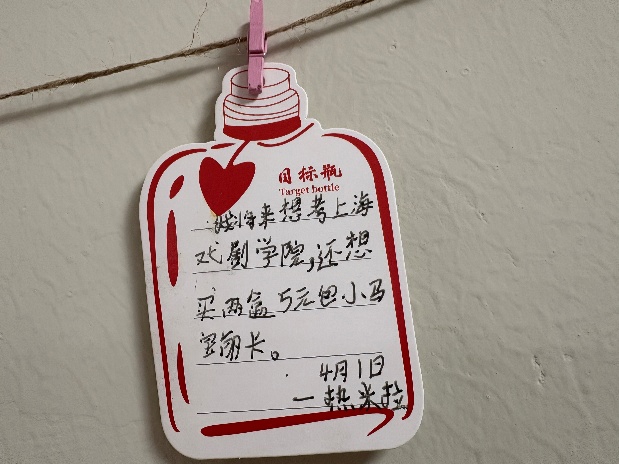 目标瓶
Target bottle
我将来想考上海
戏剧学院,还想
买两盒5元包小马
宝莉卡。
4月1日
一热米拉